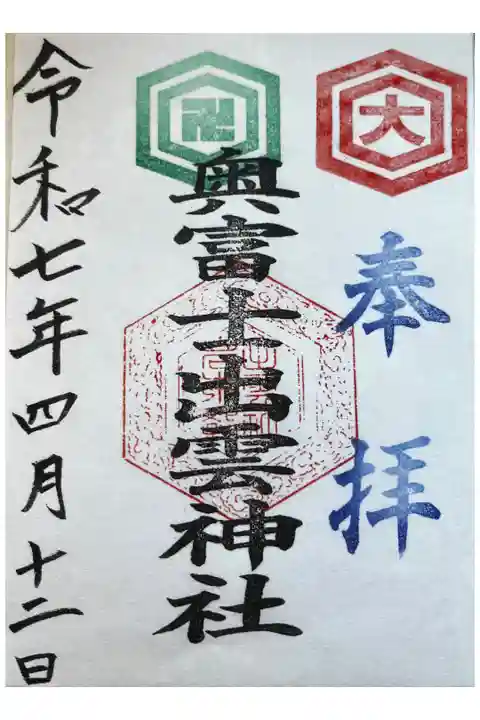 大
卍
奉拝
奥富士出雲神社
令和七年四月十二日